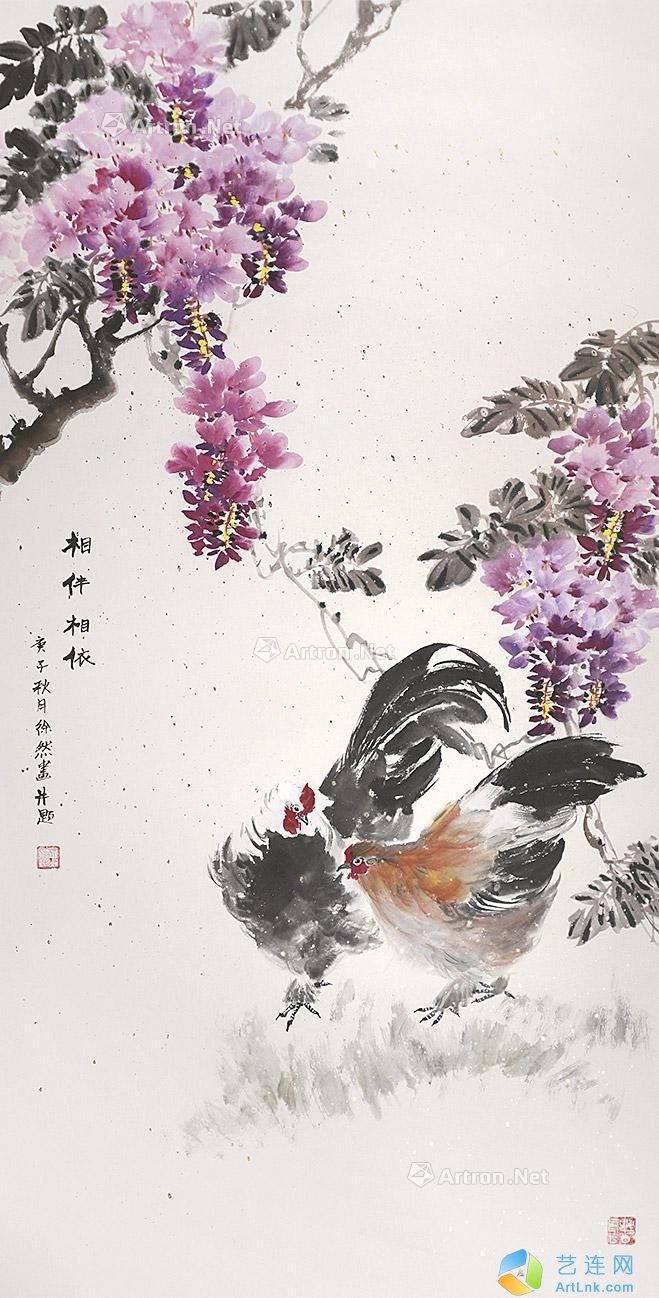 Artron.Net
相伴相依
庚子秋月徐然画并题
Artron.Net
Artron.Net
艺连网
ArtLnk.com